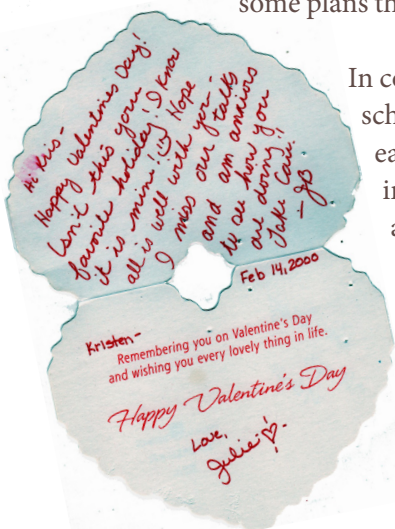 some plans th
In co
sch
ea
in
a
Hi Kris-
Happy Valentines Day!
Isn't this your
favorite holiday! I know
it is mine! Hope
all is well with you-
I miss our talks
and am anxious
to see how you
are doing!
Take Care!
- JB
Feb 14, 2000
Kristen-
Remembering you on Valentine's Day
and wishing you every lovely thing in life.
Happy Valentine's Day
Love,
Julie